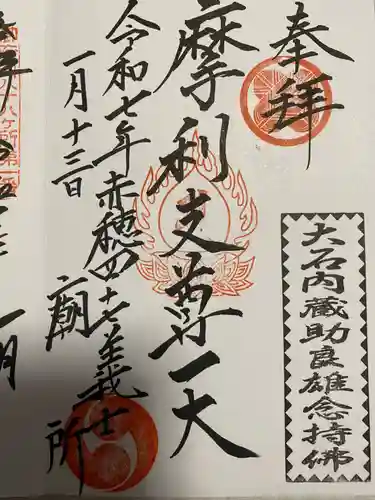 奉拝
大石内蔵助良雄念持佛
摩利支尊天
令和七年赤穂四十七義士
一月十三日
廟所